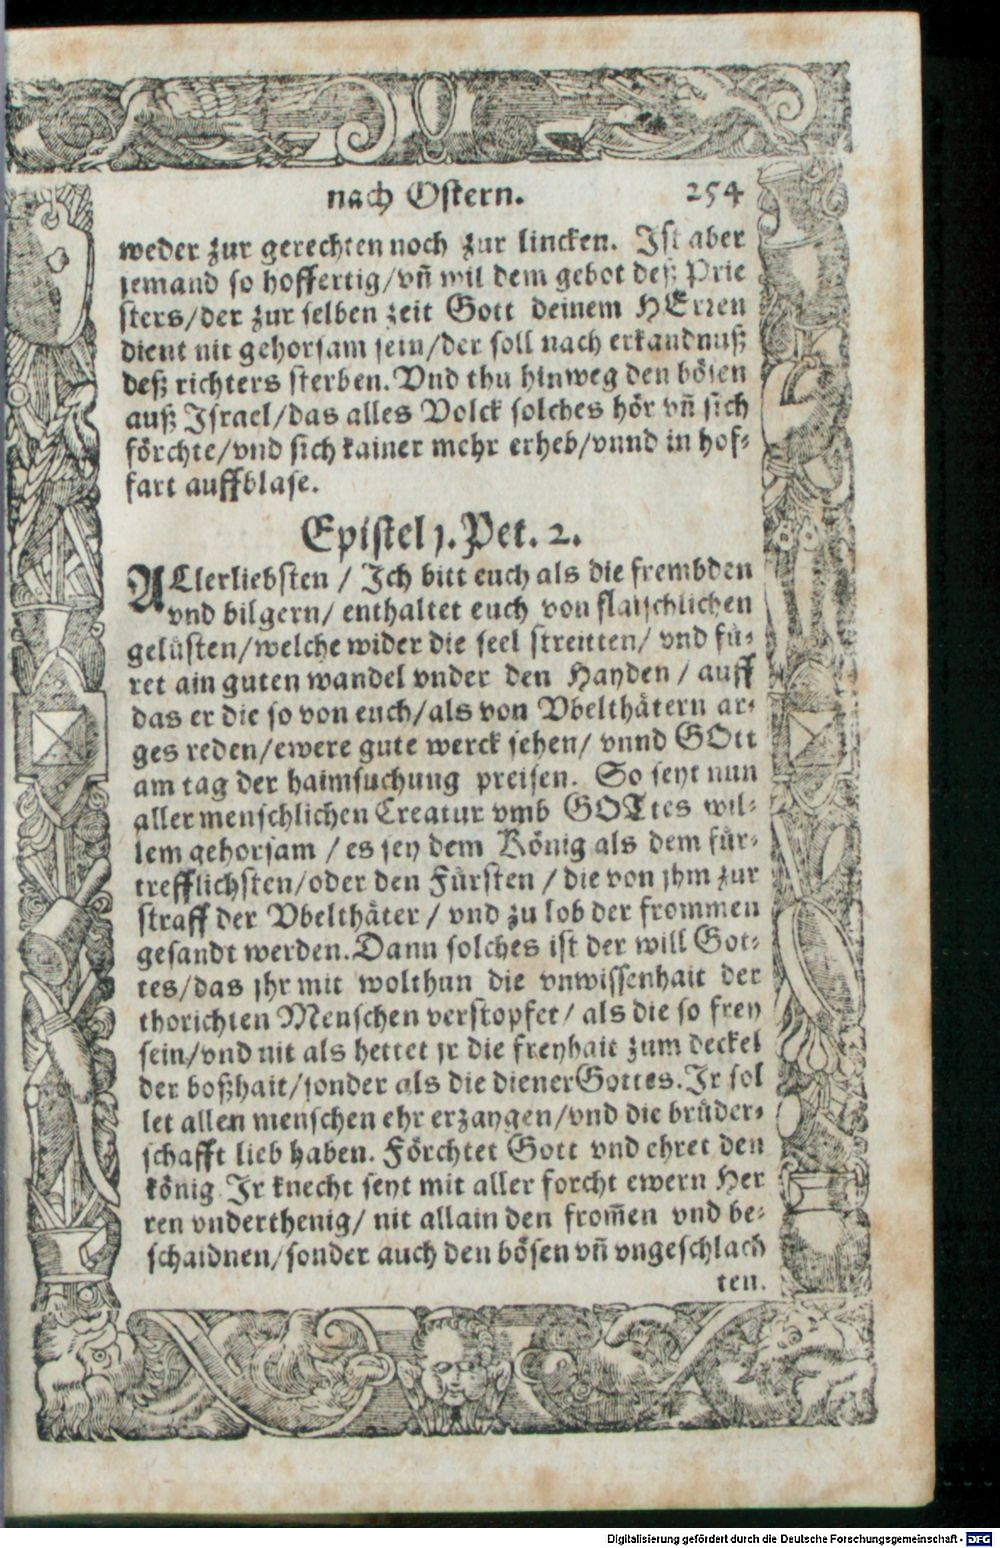 nach Ostern. 254
weder zur gerechten noch zur lincken. Ist aber
jemand so hoffertig/vñ wil dem gebot deß Prie
sters/der zur selben zeit Gott deinem HErren
dient nit gehorsam sein/der soll nach erkandnuß
deß richters sterben. Vnd thu hinweg den bösen
auß Israel/das alles Volck solches hör vñ sich
förchte/vnd sich kainer mehr erheb/vnnd in hof-
fart auffblase.
Epistel j. Pet. 2.
ALlerliebsten / Ich bitt euch als die frembden
vnd bilgern/ enthaltet euch von flaischlichen
gelüsten/welche wider die seel streitten/ vnd fü-
ret ain guten wandel vnder den Hayden / auff
das er die so von euch/als von Vbelthätern ar-
ges reden/ewere gute werck sehen/ vnnd GOtt
am tag der haimsuchung preisen. So seyt nun
aller menschlichen Creatur vmb GOTtes wil-
lem gehorsam / es sey dem König als dem für-
trefflichsten/oder den Fürsten / die von jhm zur
straff der Vbelthäter / vnd zu lob der frommen
gesandt werden. Dann solches ist der will Got-
tes/das jhr mit wolthun die vnwissenhait der
thorichten Menschen verstopfet/ als die so frey
sein/vnd nit als hettet jr die freyhait zum deckel
der boßhait/sonder als die diener Gottes. Ir sol
let allen menschen ehr erzaygen/vnd die brüder-
schafft lieb haben. Förchtet Gott vnd ehret den
könig Ir knecht seyt mit aller forcht ewern Her
ren vnderthenig/ nit allain den from̃en vnd be-
schaidnen/sonder auch den bösen vñ vngeschlach
ten.
Digitalisierung gefördert durch die Deutsche Forschungsgemeinschaft - DFG